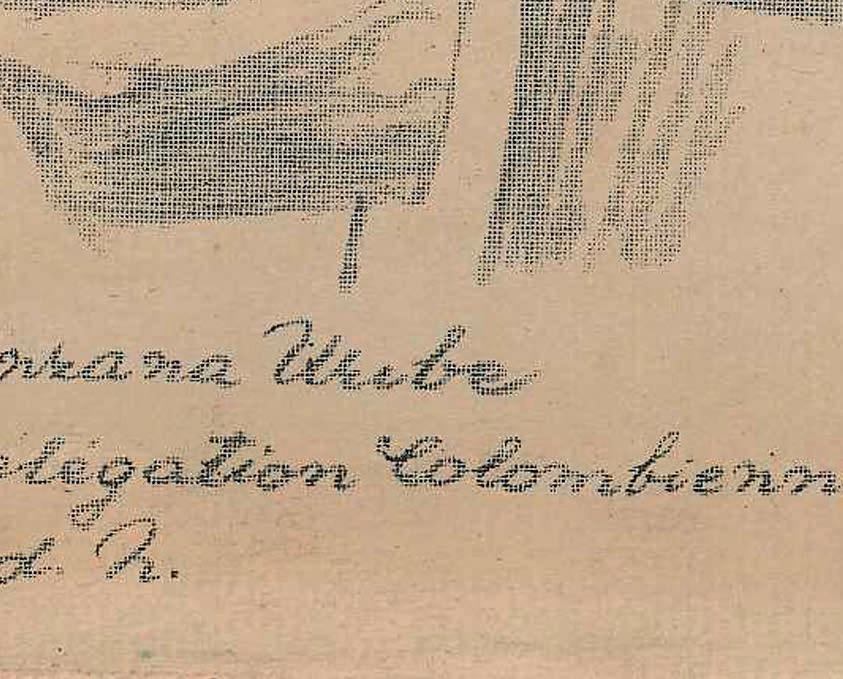 Uribe
elégation Colombienn
d. N.